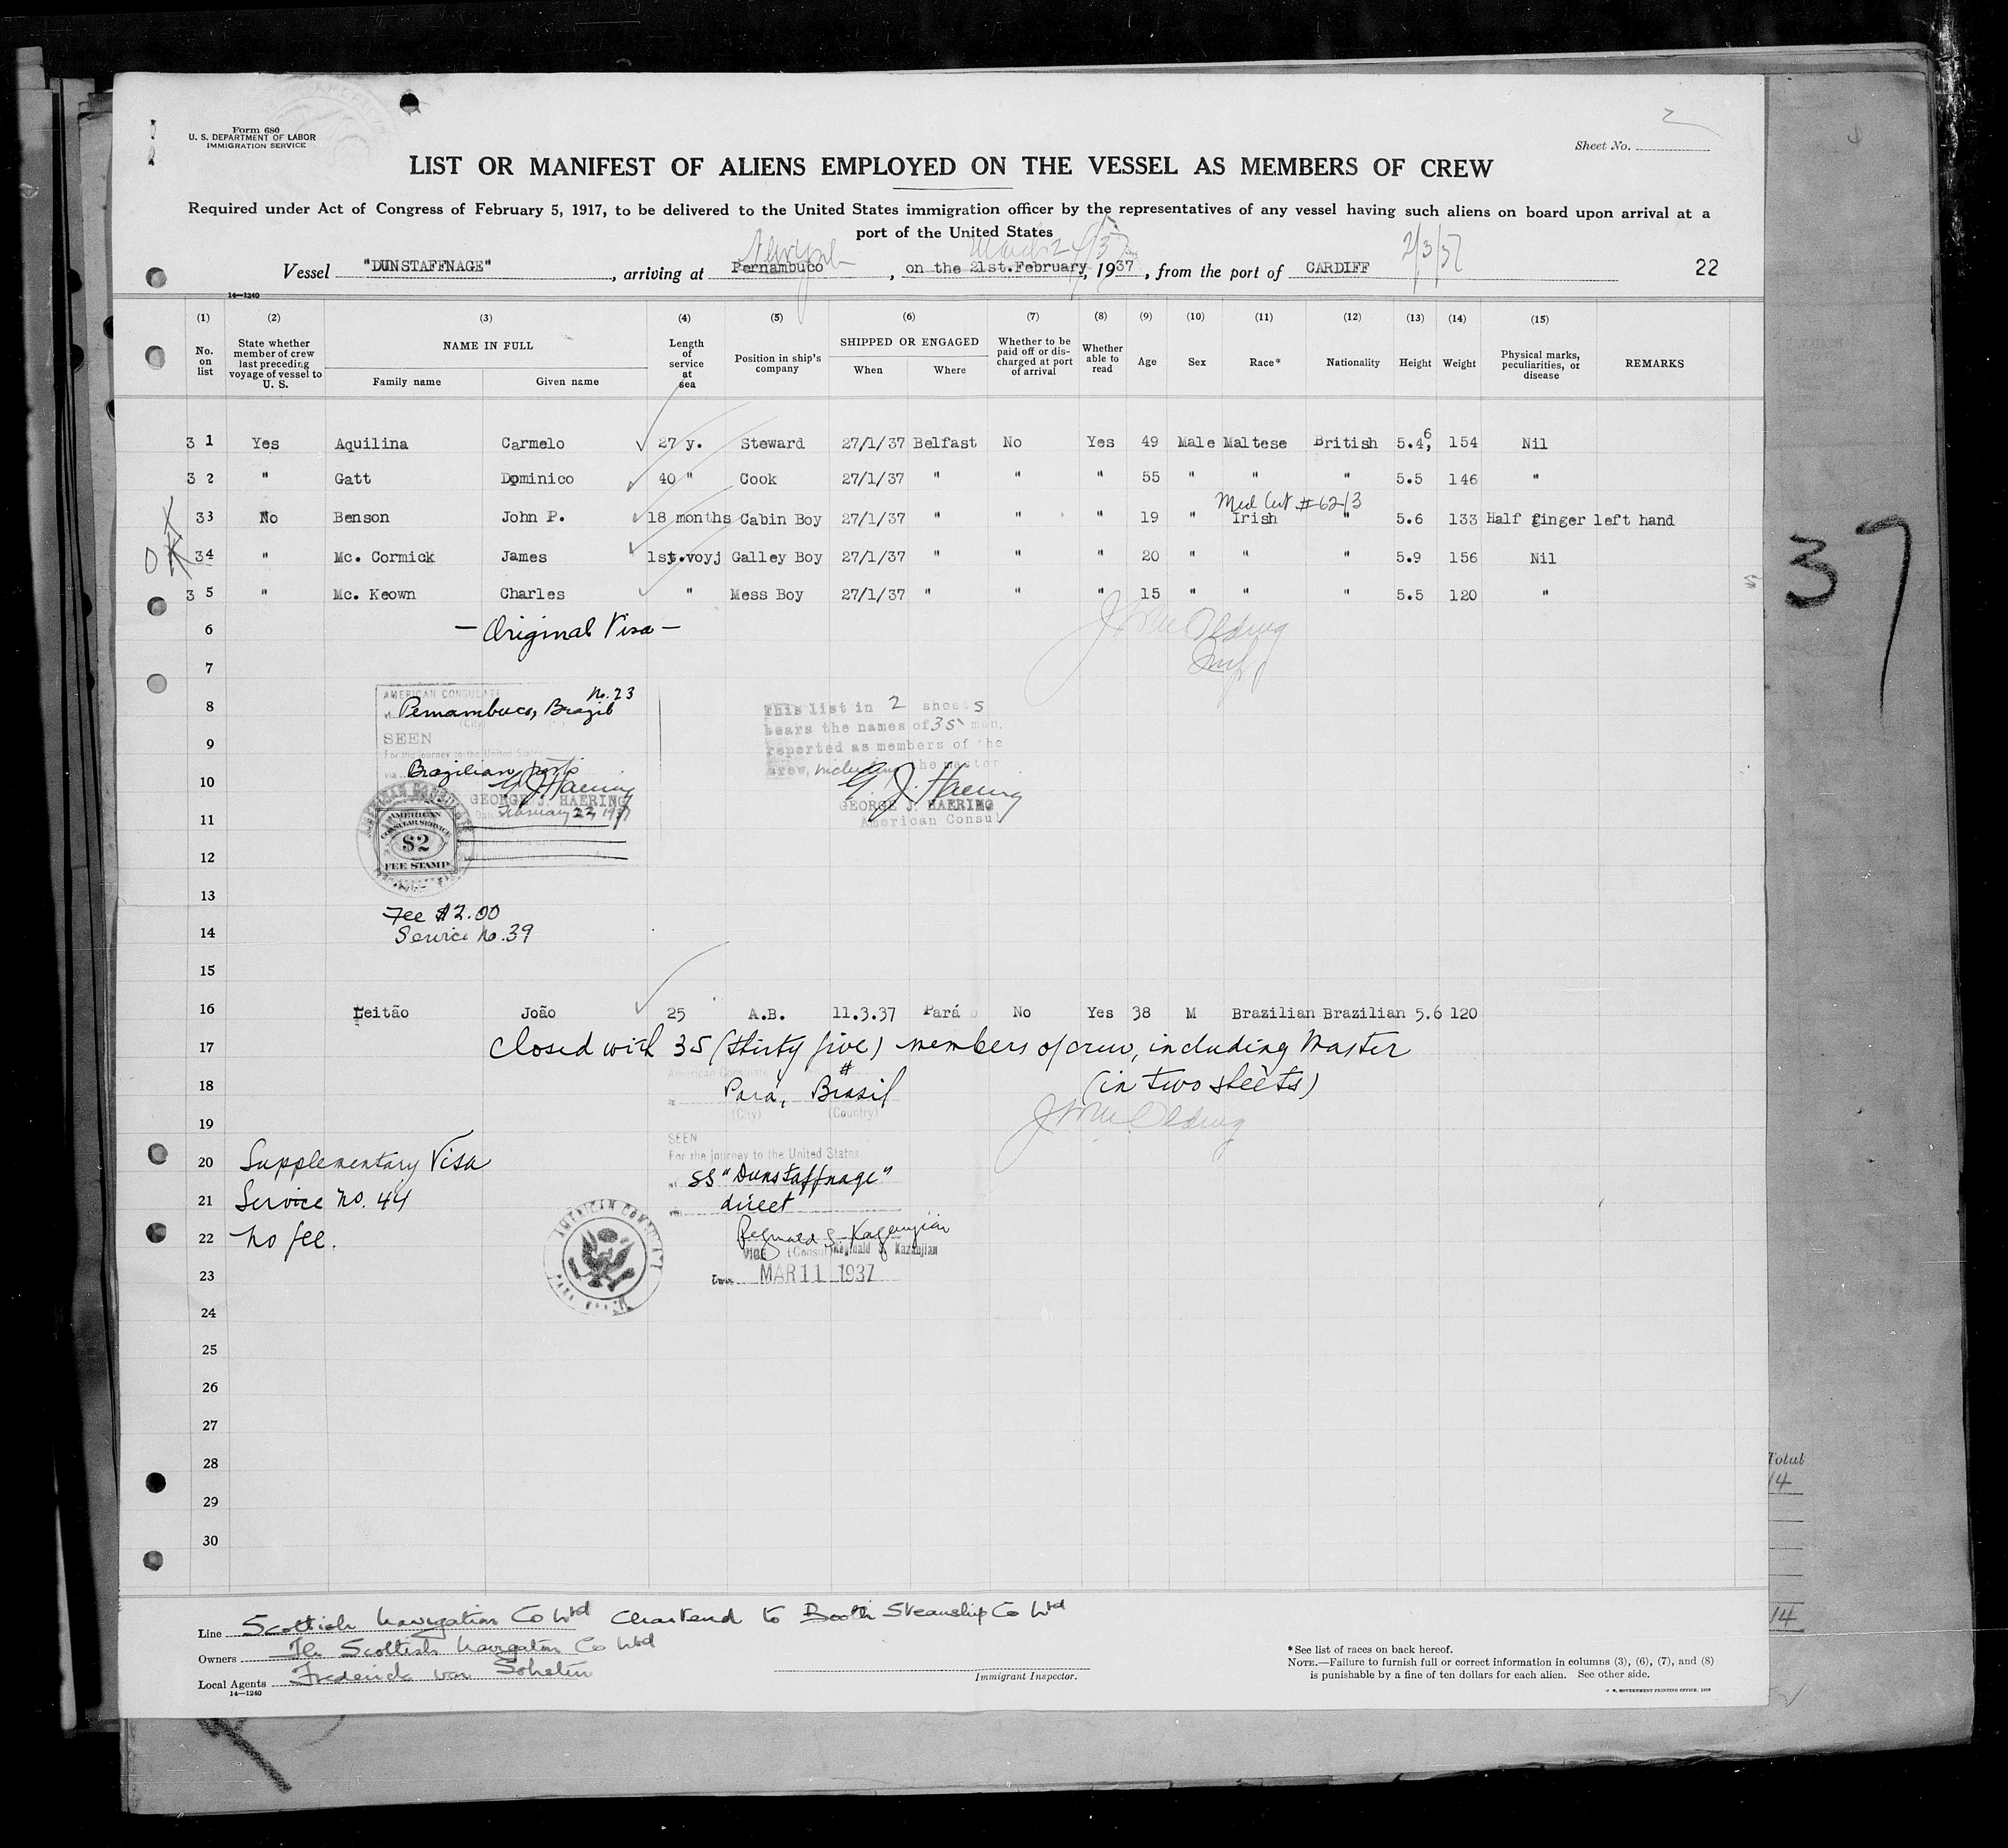 Form 680
U. S. DEPARTMENT OF LABOR
IMMIGRATION SERVICE
2
Sheet No.
LIST OR MANIFEST OF ALIENS EMPLOYED ON THE VESSEL AS MEMBERS OF CREW
Required under Act of Congress of February 5, 1917, to be delivered to the United States immigration officer by the representatives of any vessel having such aliens on board upon arrival at a
port of the United States
Vessel "DUNSTAFFNAGE", arriving at Pernambuco, on the 21st.February, 1937, from the port of CARDIFF 2/3/37 22
14—1240
(1) (2) (3) (4) (5) (6) (7) (8) (9) (10) (11) (12) (13) (14) (15)
No. on list
State whether member of crew last preceding voyage of vessel to U. S.
NAME IN FULL
Family name Given name
Length of service at sea
Position in ship's company
SHIPPED OR ENGAGED
When Where
Whether to be paid off or discharged at port of arrival
Whether able to read
Age Sex Race* Nationality Height Weight
Physical marks, peculiarities, or disease
REMARKS
3 1 Yes Aquilina Carmelo 27 y. Steward 27/1/37 Belfast No Yes 49 Male Maltese British 5.4, 6 154 Nil
3 2 " Gatt Dominico 40 " Cook 27/1/37 " " " 55 " " " 5.5 146 "
Med Cert #6213
33 No Benson John P. 18 months Cabin Boy 27/1/37 " " " 19 " Irish " 5.6 133 Half finger left hand
34 " Mc. Cormick James 1st.voyj Galley Boy 27/1/37 " " " 20 " " " 5.9 156 Nil
3 5 " Mc. Keown Charles " Mess Boy 27/1/37 " " " 15 " " " 5.5 120 "
37
6 — Original Visa —
7
AMERICAN CONSULATE No. 23
8 Pernambuco, Brazil
(City)
SEEN
For the journey to the United States
via Brazilian ports
G. J. Haering
GEORGE J. HAERING
February 22, 1937
AMERICAN
CONSULAR SERVICE
$2
FEE STAMP
This list in 2 sheets
bears the names of 35 men,
reported as members of the
crew, including the master
G. J. Haering
GEORGE J. HAERING
American Consul
9
10
11
12
13
Fee $2.00
14 Service No. 39
15
16 Leitão João 25 A.B. 11.3.37 Pará No Yes 38 M Brazilian Brazilian 5.6 120
17 Closed with 35 (thirty five) members of crew, including Master
(in two sheets)
18 American Consulate
Pará, Brasil
(City) (Country)
19
SEEN
For the journey to the United States
20 Supplementary Visa
SS "Dunstaffnage"
21 Service No. 44
direct
22 No fee.
Reginald S. Kazanjian
VICE (Consul) Reginald S. Kazanjian
AMERICAN CONSULATE
PARA BRAZIL
MAR 11 1937
23
24
25
26
27
28
29
30
Total
14
14
Line Scottish Navigation Co Ltd Chartered to Booth Steamship Co Ltd
Owners The Scottish Navigation Co Ltd
Local Agents Frederick van
14—1240
Immigrant Inspector.
*See list of races on back hereof.
NOTE.—Failure to furnish full or correct information in columns (3), (6), (7), and (8)
is punishable by a fine of ten dollars for each alien. See other side.